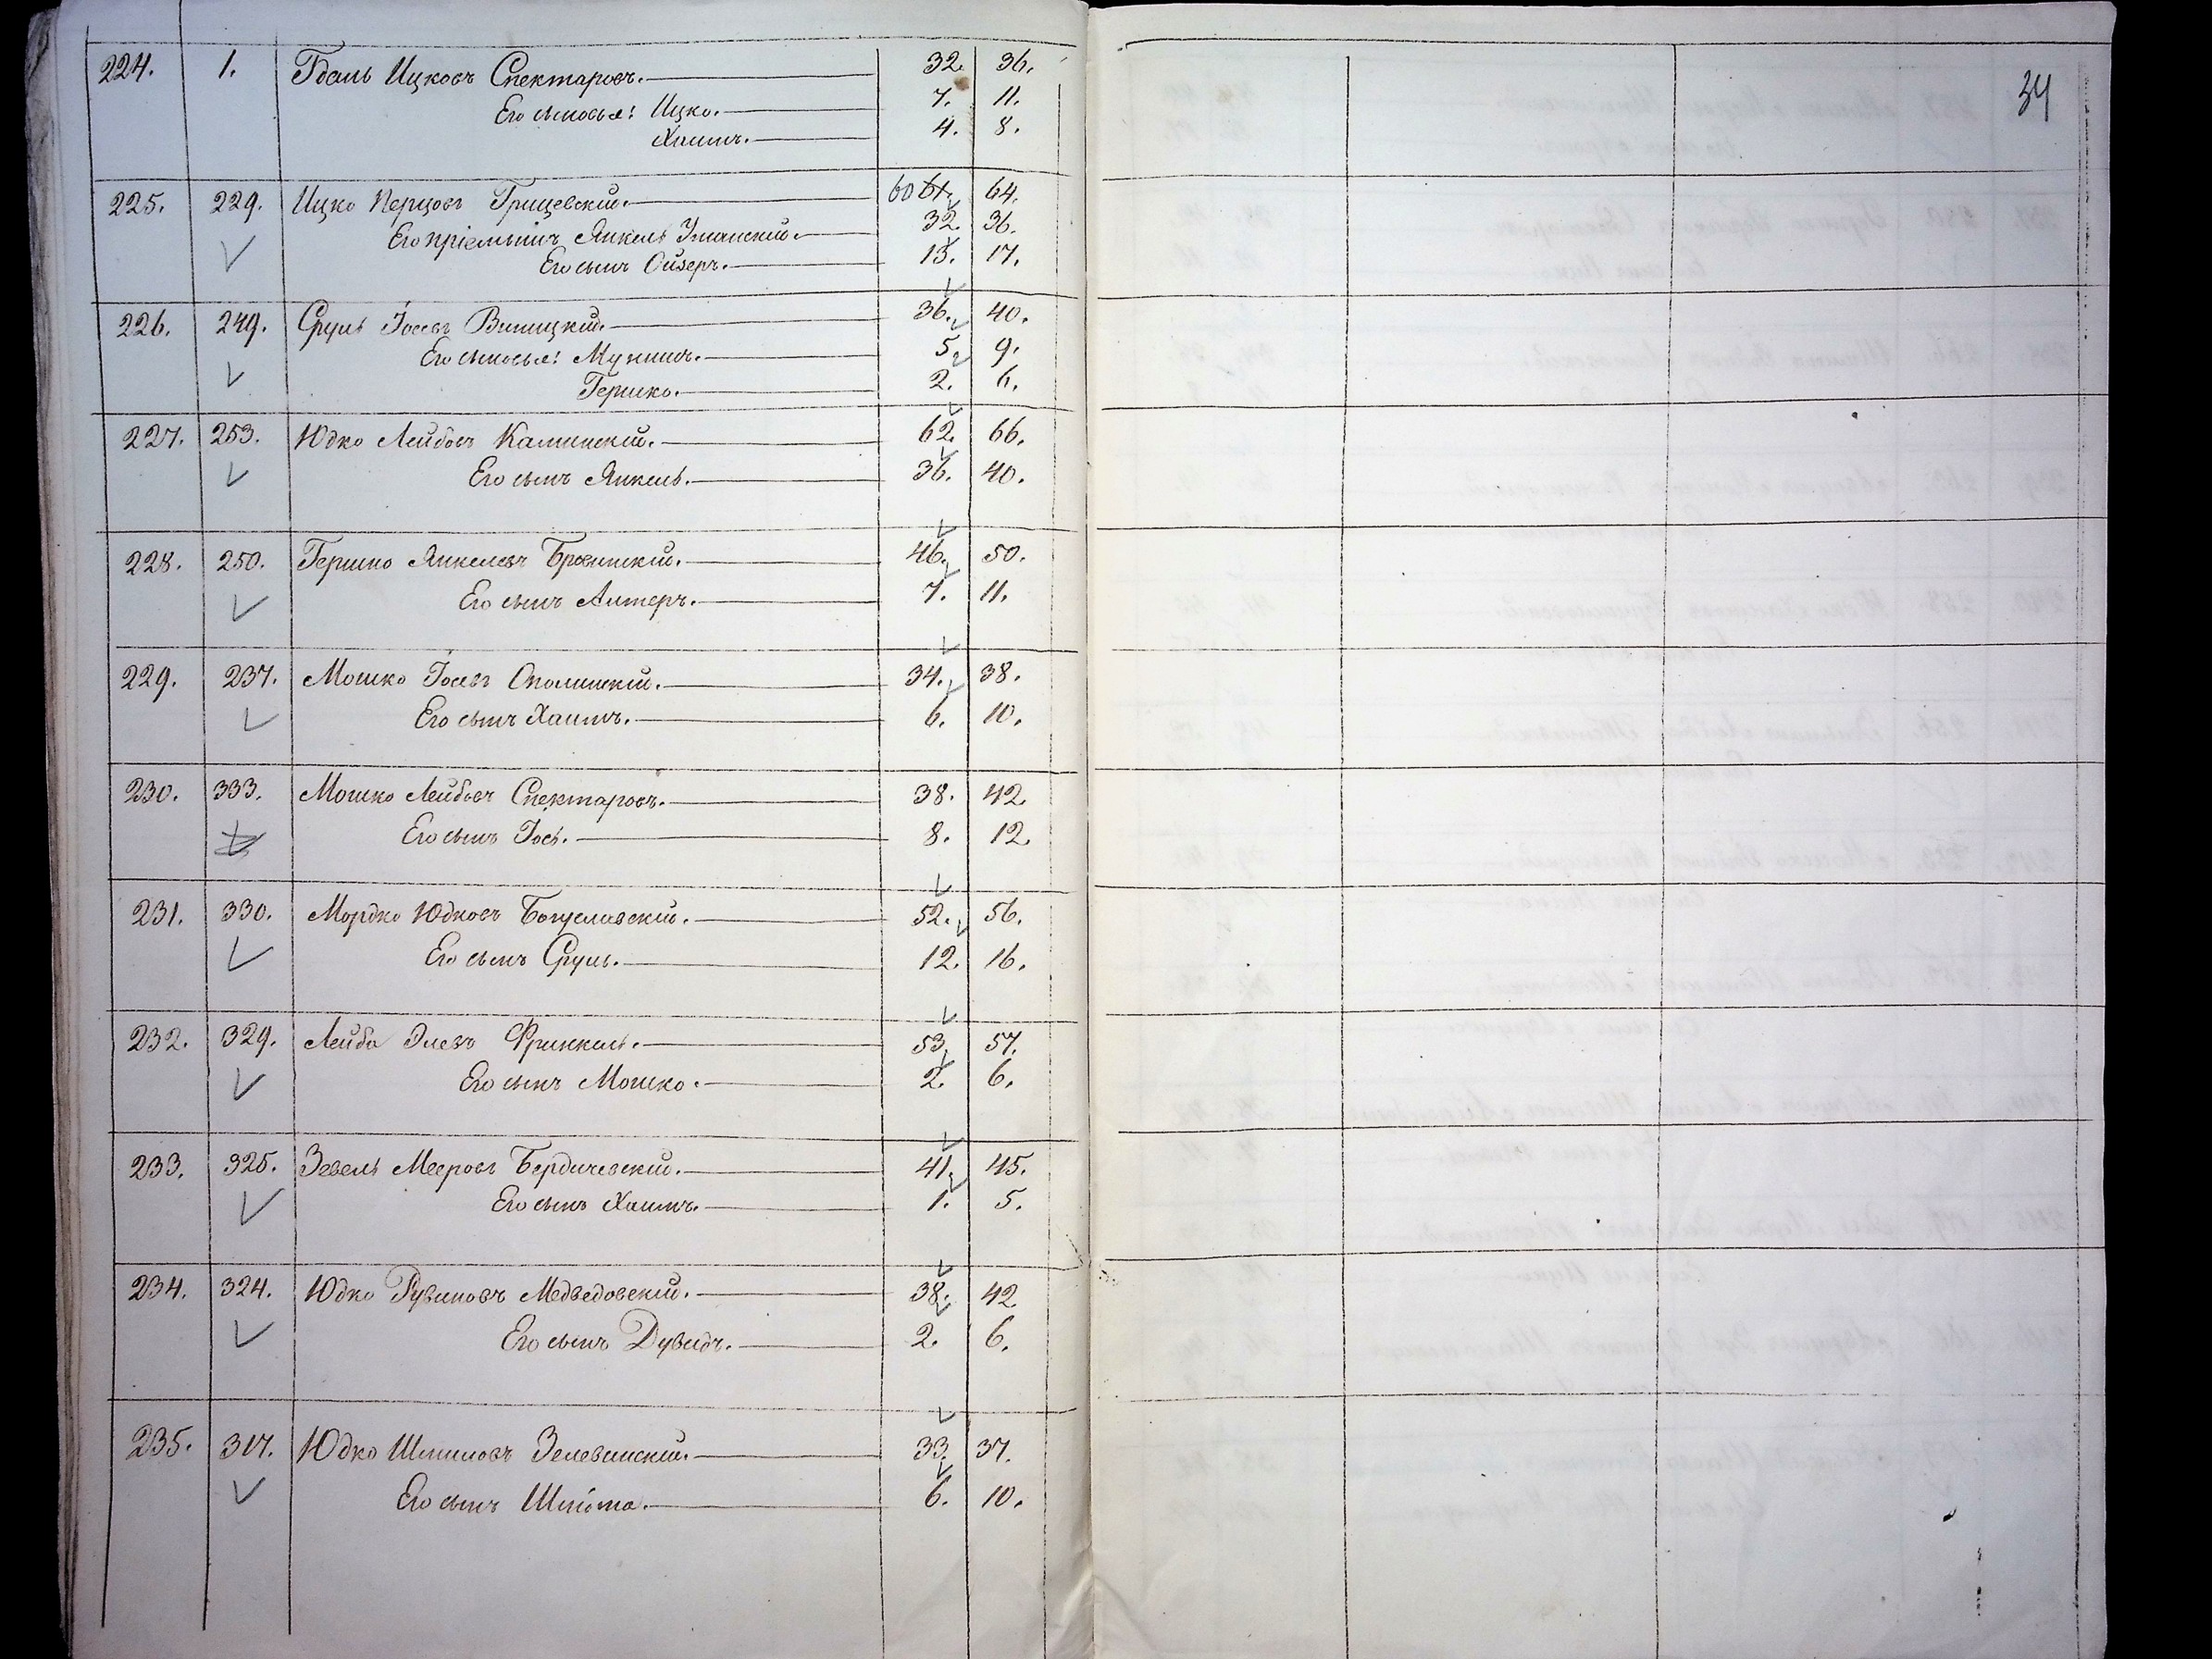 34
224. 1. Гдаль Ицковъ Спектаровъ. 32. 36.
Его сыновья: Ицко. 7. 11.
Хаимъ. 4. 8.
225. 229. Ицко Перцовъ Грищевскій. 60 61. 64.
Его пріемышъ Янкель Уманскій. 32. 36.
Его сынъ Ойзеръ. 13. 17.
226. 249. Сруль Іосевъ Виницкій. 36. 40.
Его сыновья: Мунишъ. 5. 9.
Гершко. 2. 6.
227. 253. Юдко Лейбовъ Калинскій. 62. 66.
Его сынъ Янкель. 36. 40.
228. 250. Гершко Янкелевъ 46. 50.
Его сынъ Алтеръ. 7. 11.
229. 237. Мошко Іосевъ Ополинскій. 34. 38.
Его сынъ Хаимъ. 6. 10.
230. 333. Мошко Лейбовъ Спектаровъ. 38. 42.
Его сынъ Іось. 8. 12.
231. 330. Мордко Юдковъ Богуславскій. 52. 56.
Его сынъ Сруль. 12. 16.
232. 329. Лейба Элевъ Френкель. 53. 57.
Его сынъ Мошко. 2. 6.
233. 325. Зевель Мееровъ Бердичевскій. 41. 45.
Его сынъ Хаимъ. 1. 5.
234. 324. Юдко Рувиновъ Медведовскій. 38. 42.
Его сынъ Дувидъ. 2. 6.
235. 317. Юдко Шмиловъ Зелевинскій. 33. 37.
Его сынъ Шліома. 6. 10.